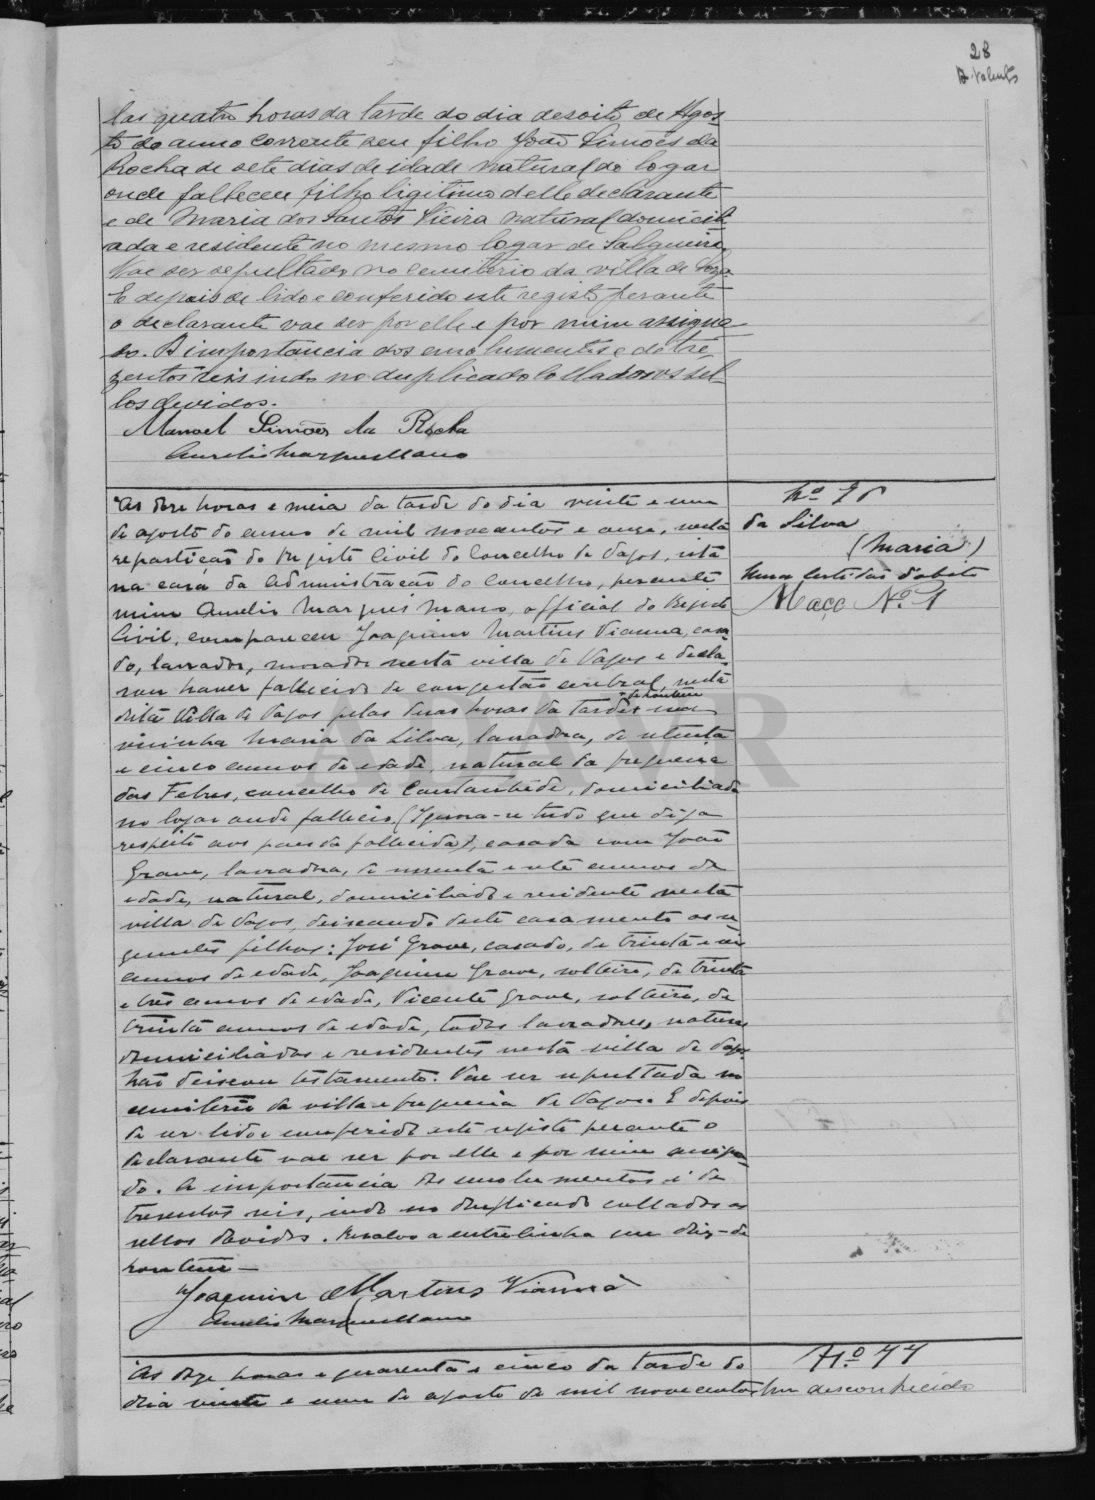 28
las quatro horas da tarde do dia desoito de Agos-
to do anno corrente seu filho João Simões da
Rocha de sete dias de idade natural do logar
onde falleceu filho ligitimo delle declarante
e de Maria dos Santos Vieira natural domicili
ada e residente no mesmo logar de Salgueiro.
Vae ser sepultado no cemiterio da villa de Soza.
E depois de lido e conferido este registo perante
o declarante vae ser por elle e por mim assigna
do. A importancia dos emolumentos e de tre-
zentos reis indo no duplicado collados os sel-
los devidos.
Manoel Simões da Rocha
Aurelio Marques Mano
As doze horas e meia da tarde do dia vinte e um
de agosto do anno de mil novecentos e onze, nesta
repartição do Registo Civil do Concelho de Vagos, sita
na casa da Administração do Concelho, perante
mim Aurelio Marques Mano, official do Registo
Civil, compareceu Joaquim Martins Vianna, casa
do, lavrador, morador nesta villa de Vagos e decla-
rou haver fallecido de congestão cerebral, nesta
dita villa de Vagos pelas duas horas da tarde de hontem
visinha Maria da Silva, lavradora, de setenta
e cinco annos de edade, natural da freguezia
das Febres, concelho de Cantanhede, domiciliada
no logar onde falleceu, (Ignora-se tudo que diga
respeito aos paes da fallecida), casada com João
Grave, lavrador, de sessenta e sete annos de
edade, natural, domiciliado e residente nesta
villa de Vagos, deixando deste casamento os se
guintes filhos: José Grave, casado, de trinta e seis
annos de edade, Joaquim Grave, solteiro, de trinta
e três annos de edade, Vicente Grave, solteiro, de
trinta annos de edade, todos lavradores, naturaes
domiciliados e residentes nesta villa de Vagos.
Não deixou testamento. Vae ser sepultada no
cemiterio da villa e freguezia de Vagos. E depois
de ser lido e conferido este registo perante o
declarante vae ser por elle e por mim assigna-
do. A importancia dos emolumentos é de
tresentos reis, indo no duplicado collados os
sellos devidos. Resalvo a entrelinha que diz-de
hontem-
Joaquim Martins Vianna
Aurelio Marques Mano
Nº 76
da Silva
(Maria)
Uma certidão d'obito
Maço Nº 1
As doze horas e quarenta e cinco da tarde do
dia vinte e um de agosto de mil novecentos
Nº 77
Um desconhecido